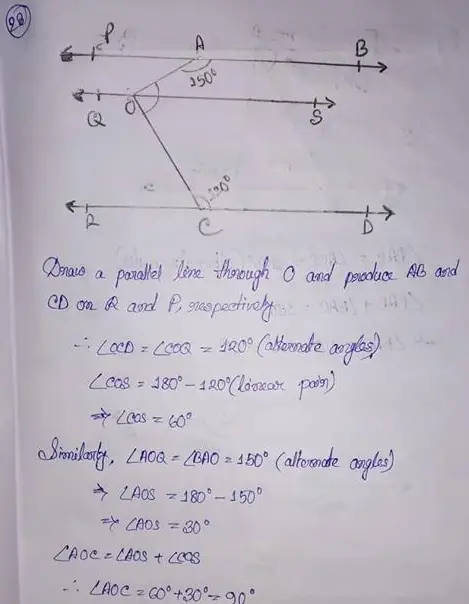 28
P A B
150°
Q O S
120°
R C D
Draw a parallel line through O and produce AB and
CD on R and P, respectively
∴ ∠OCD = ∠COQ = 120° (alternate angles)
∠COS = 180° - 120° (linear pair)
⇒ ∠COS = 60°
Similarly, ∠AOQ = ∠BAO = 150° (alternate angles)
⇒ ∠AOS = 180° - 150°
⇒ ∠AOS = 30°
∠AOC = ∠AOS + ∠COS
∴ ∠AOC = 60° + 30° = 90°